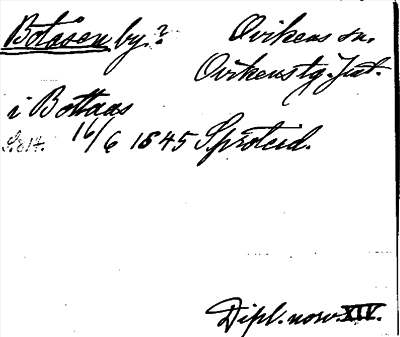 Botåsen by.? Ovikens sn.
Ovikenstg. Jmt.
i Bottaas
S. 814. 16/6 1545 Sproteid.
Dipl. norv. XIV.